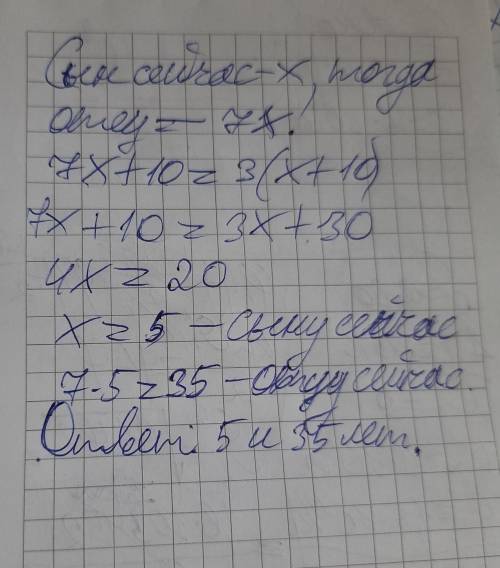 Сын сейчас - х, тогда
отец = 7х.
7х+10=3(х+10)
7х+10=3х+30
4х=20
х=5 - сыну сейчас
7·5=35 - отцу сейчас.
Ответ: 5 и 35 лет.